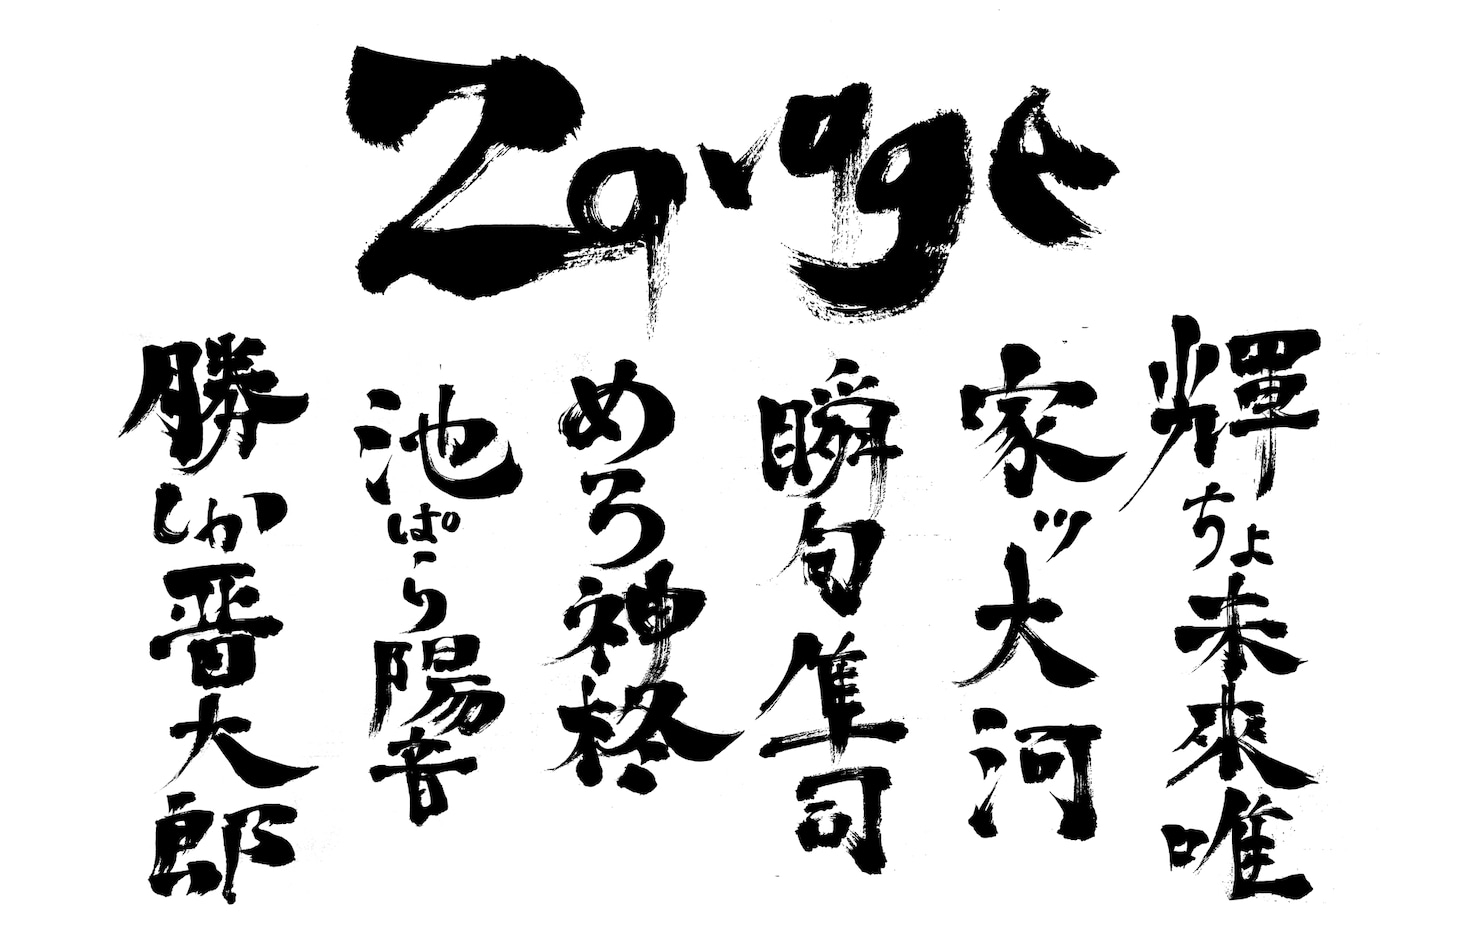 Zavage
輝ちょ未來唯
家ッ大河
瞬旬隼司
めろ神柊
池ぱら陽音
勝しか晋太郎